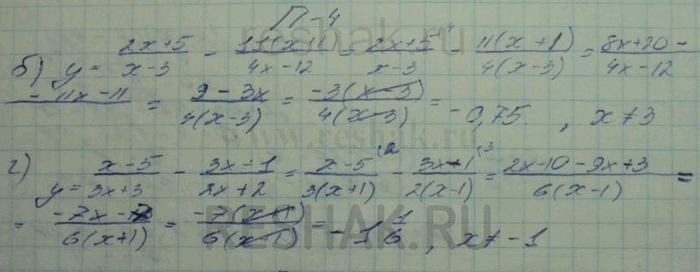 П. 4
б) y = (2x+5)/(x-3) - (11(x+1))/(4x-12) = (2x+5)/(x-3) ⁽⁴ - (11(x+1))/(4(x-3)) = (8x+20-
-11x-11)/(4x-12) = (9-3x)/(4(x-3)) = (-3(x-3))/(4(x-3)) = -0,75, x≠3
г) y = (x-5)/(3x+3) - (3x-1)/(2x+2) = (x-5)/(3(x+1)) ⁽² - (3x-1)/(2(x-1)) ⁽³ = (2x-10-9x+3)/(6(x-1)) =
= (-7x-7)/(6(x+1)) = (-7(x+1))/(6(x+1)) = -1 1/6, x≠-1
www.reshak.ru
RESHAK.RU